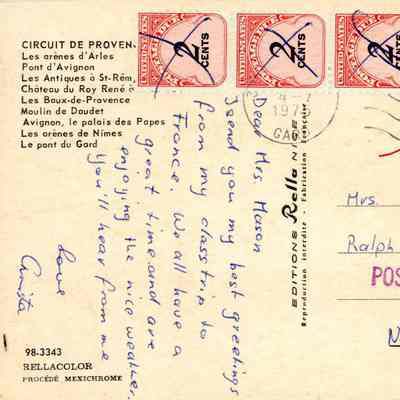 CIRCUIT DE PROVEN
Les arènes d'Arles
Pont d'Avignon
Les Antiques à St-Rém
Château du Roy René à
Les Baux-de-Provence
Moulin de Daudet
Avignon, le palais des Papes
Les arènes de Nîmes
Le pont du Gard
UNITED STATES
2
CENTS
UNITED STATES
2
CENTS
UNITED STATES
2
CENTS
197
GA
Dear Mrs. Mason
I send you my best greetings
from my class trip to
France. We all have a
great time and are
enjoying the nice weather.
You'll hear from me
Love
Anita
EDITIONS Rella NICE
Reproduction Interdite - Fabrication Française
Mrs.
Ralph
POS
N
98-3343
RELLACOLOR
PROCÉDÉ MEXICHROME